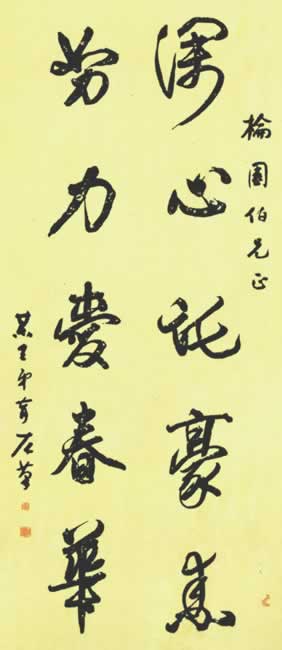 園伯兄正
深心託豪素
努力愛春華